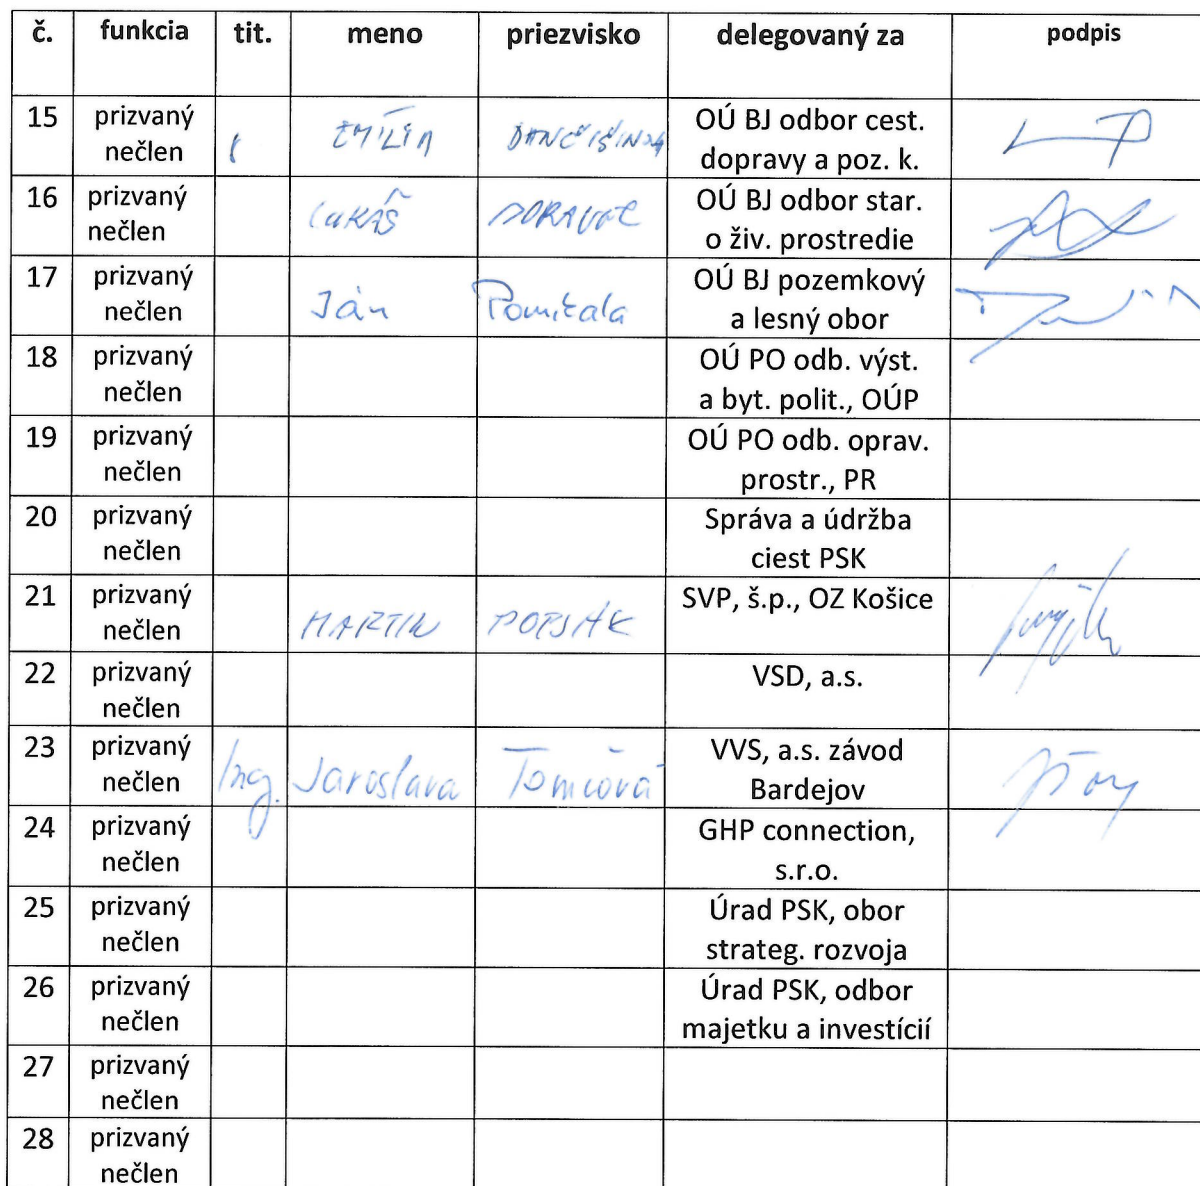 č. funkcia tit. meno priezvisko delegovaný za podpis
15 prizvaný nečlen EMÍLIA OÚ BJ odbor cest. dopravy a poz. k.
16 prizvaný nečlen LUKÁŠ OÚ BJ odbor star. o živ. prostredie
17 prizvaný nečlen Ján OÚ BJ pozemkový a lesný obor
18 prizvaný nečlen OÚ PO odb. výst. a byt. polit., OÚP
19 prizvaný nečlen OÚ PO odb. oprav. prostr., PR
20 prizvaný nečlen Správa a údržba ciest PSK
21 prizvaný nečlen MARTIN SVP, š.p., OZ Košice
22 prizvaný nečlen VSD, a.s.
23 prizvaný nečlen Ing. Jaroslava Tomčová VVS, a.s. závod Bardejov
24 prizvaný nečlen GHP connection, s.r.o.
25 prizvaný nečlen Úrad PSK, obor strateg. rozvoja
26 prizvaný nečlen Úrad PSK, odbor majetku a investícií
27 prizvaný nečlen
28 prizvaný nečlen